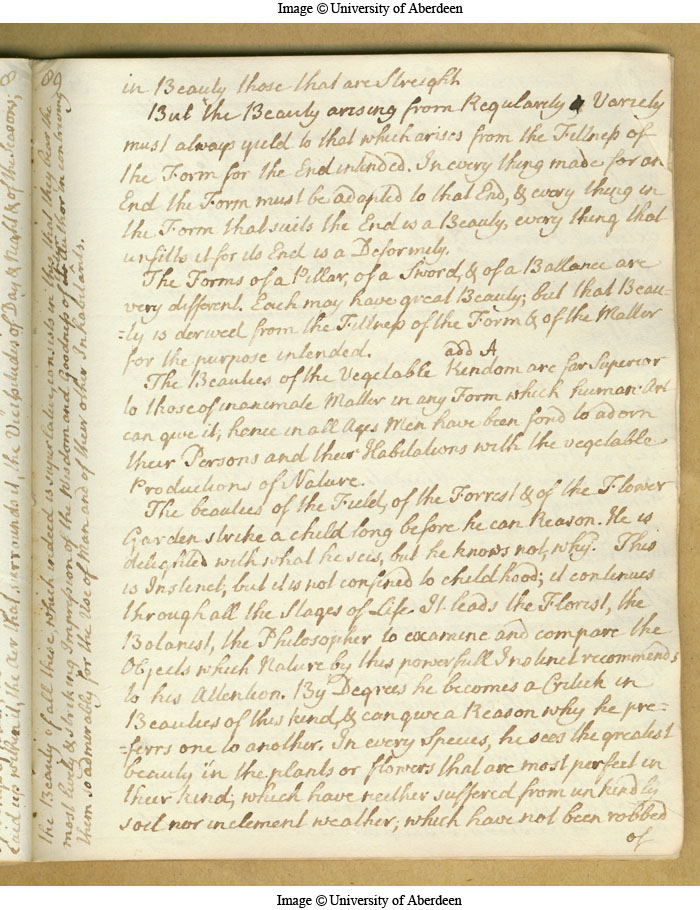 Image © University of Aberdeen
in Beauty those that are Streight
But the Beauty arising from Regularity & Variety
must always yield to that which arises from the Fitness of
the Form for the End intended. In every thing made for an
End the Form must be adapted to that End, & every thing in
the Form that suits the End is a Beauty, every thing that
unfitts it for its End is a Deformity.
The Forms of a Pillar, of a Sword, & of a Ballance are
very different. Each may have great Beauty; but that Beau-
=ty is derived from the Fittness of the Form & of the Matter
for the purpose intended.
add A
The Beauties of the Vegetable Kindom are far Superior
to those of inanimate Matter in any Form which human Art
can give it; hence in all Ages Men have been fond to adorn
their Persons and their Habitations with the vegetable
Productions of Nature.
The beauties of the Field, of the Forrest & of the Flower
Garden strike a child long before he can Reason. He is
delighted with what he sees, but he knows not, why. This
is Instinct, but it is not confined to childhood; it continues
through all the Stages of Life. It leads the Florist, the
Botanist, the Philosopher to examine and compare the
Objects which Nature by this powerfull Instinct recommends
to his Attention. By Degrees he becomes a Critick in
Beauties of this kind, & can give a Reason why he pre=
=ferrs one to another. In every Species, he sees the greatest
beauty in the plants or flowers that are most perfect in
their kind; which have neither suffered from unkindly
soil nor inclement weather; which have not been robbed
of
the Air that surrounds it, the Vicissitudes of Day & Night & of the Seasons;
the Beauty of all these, which indeed is superlative, consists in this that they bear the
most lively & striking Impression of the Wisdom and Goodness of Author in contriving
them so admirably for the Use of Man and of their other Inhabitants.
Image © University of Aberdeen